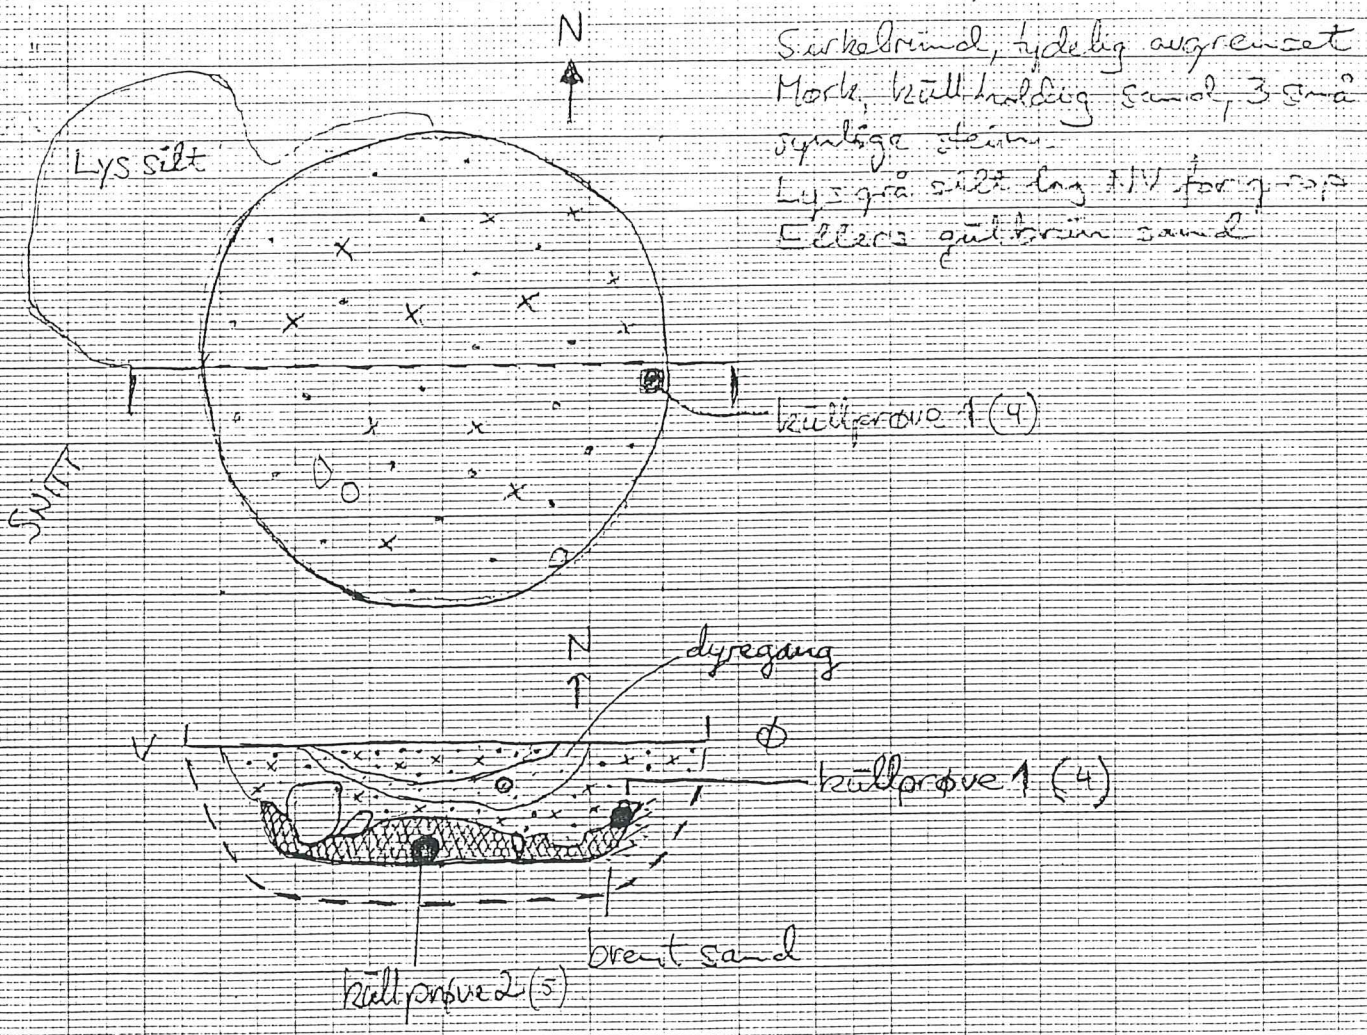 N
Sirkelrund, tydelig avgrenset
Mørk, kullholdig sand, 3 små
synlige stein.
Lys grå silt lag NV for grop
Ellers gulbrun sand
Lys silt
kullprøve 1 (4)
SNITT
N
dyregang
V
Ø
kullprøve 1 (4)
brent sand
kullprøve 2 (5)